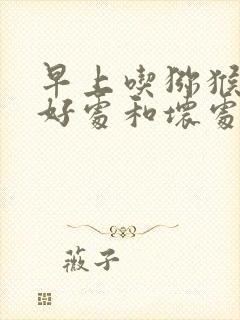 早上喫猕猴
好處和壞處
薇子